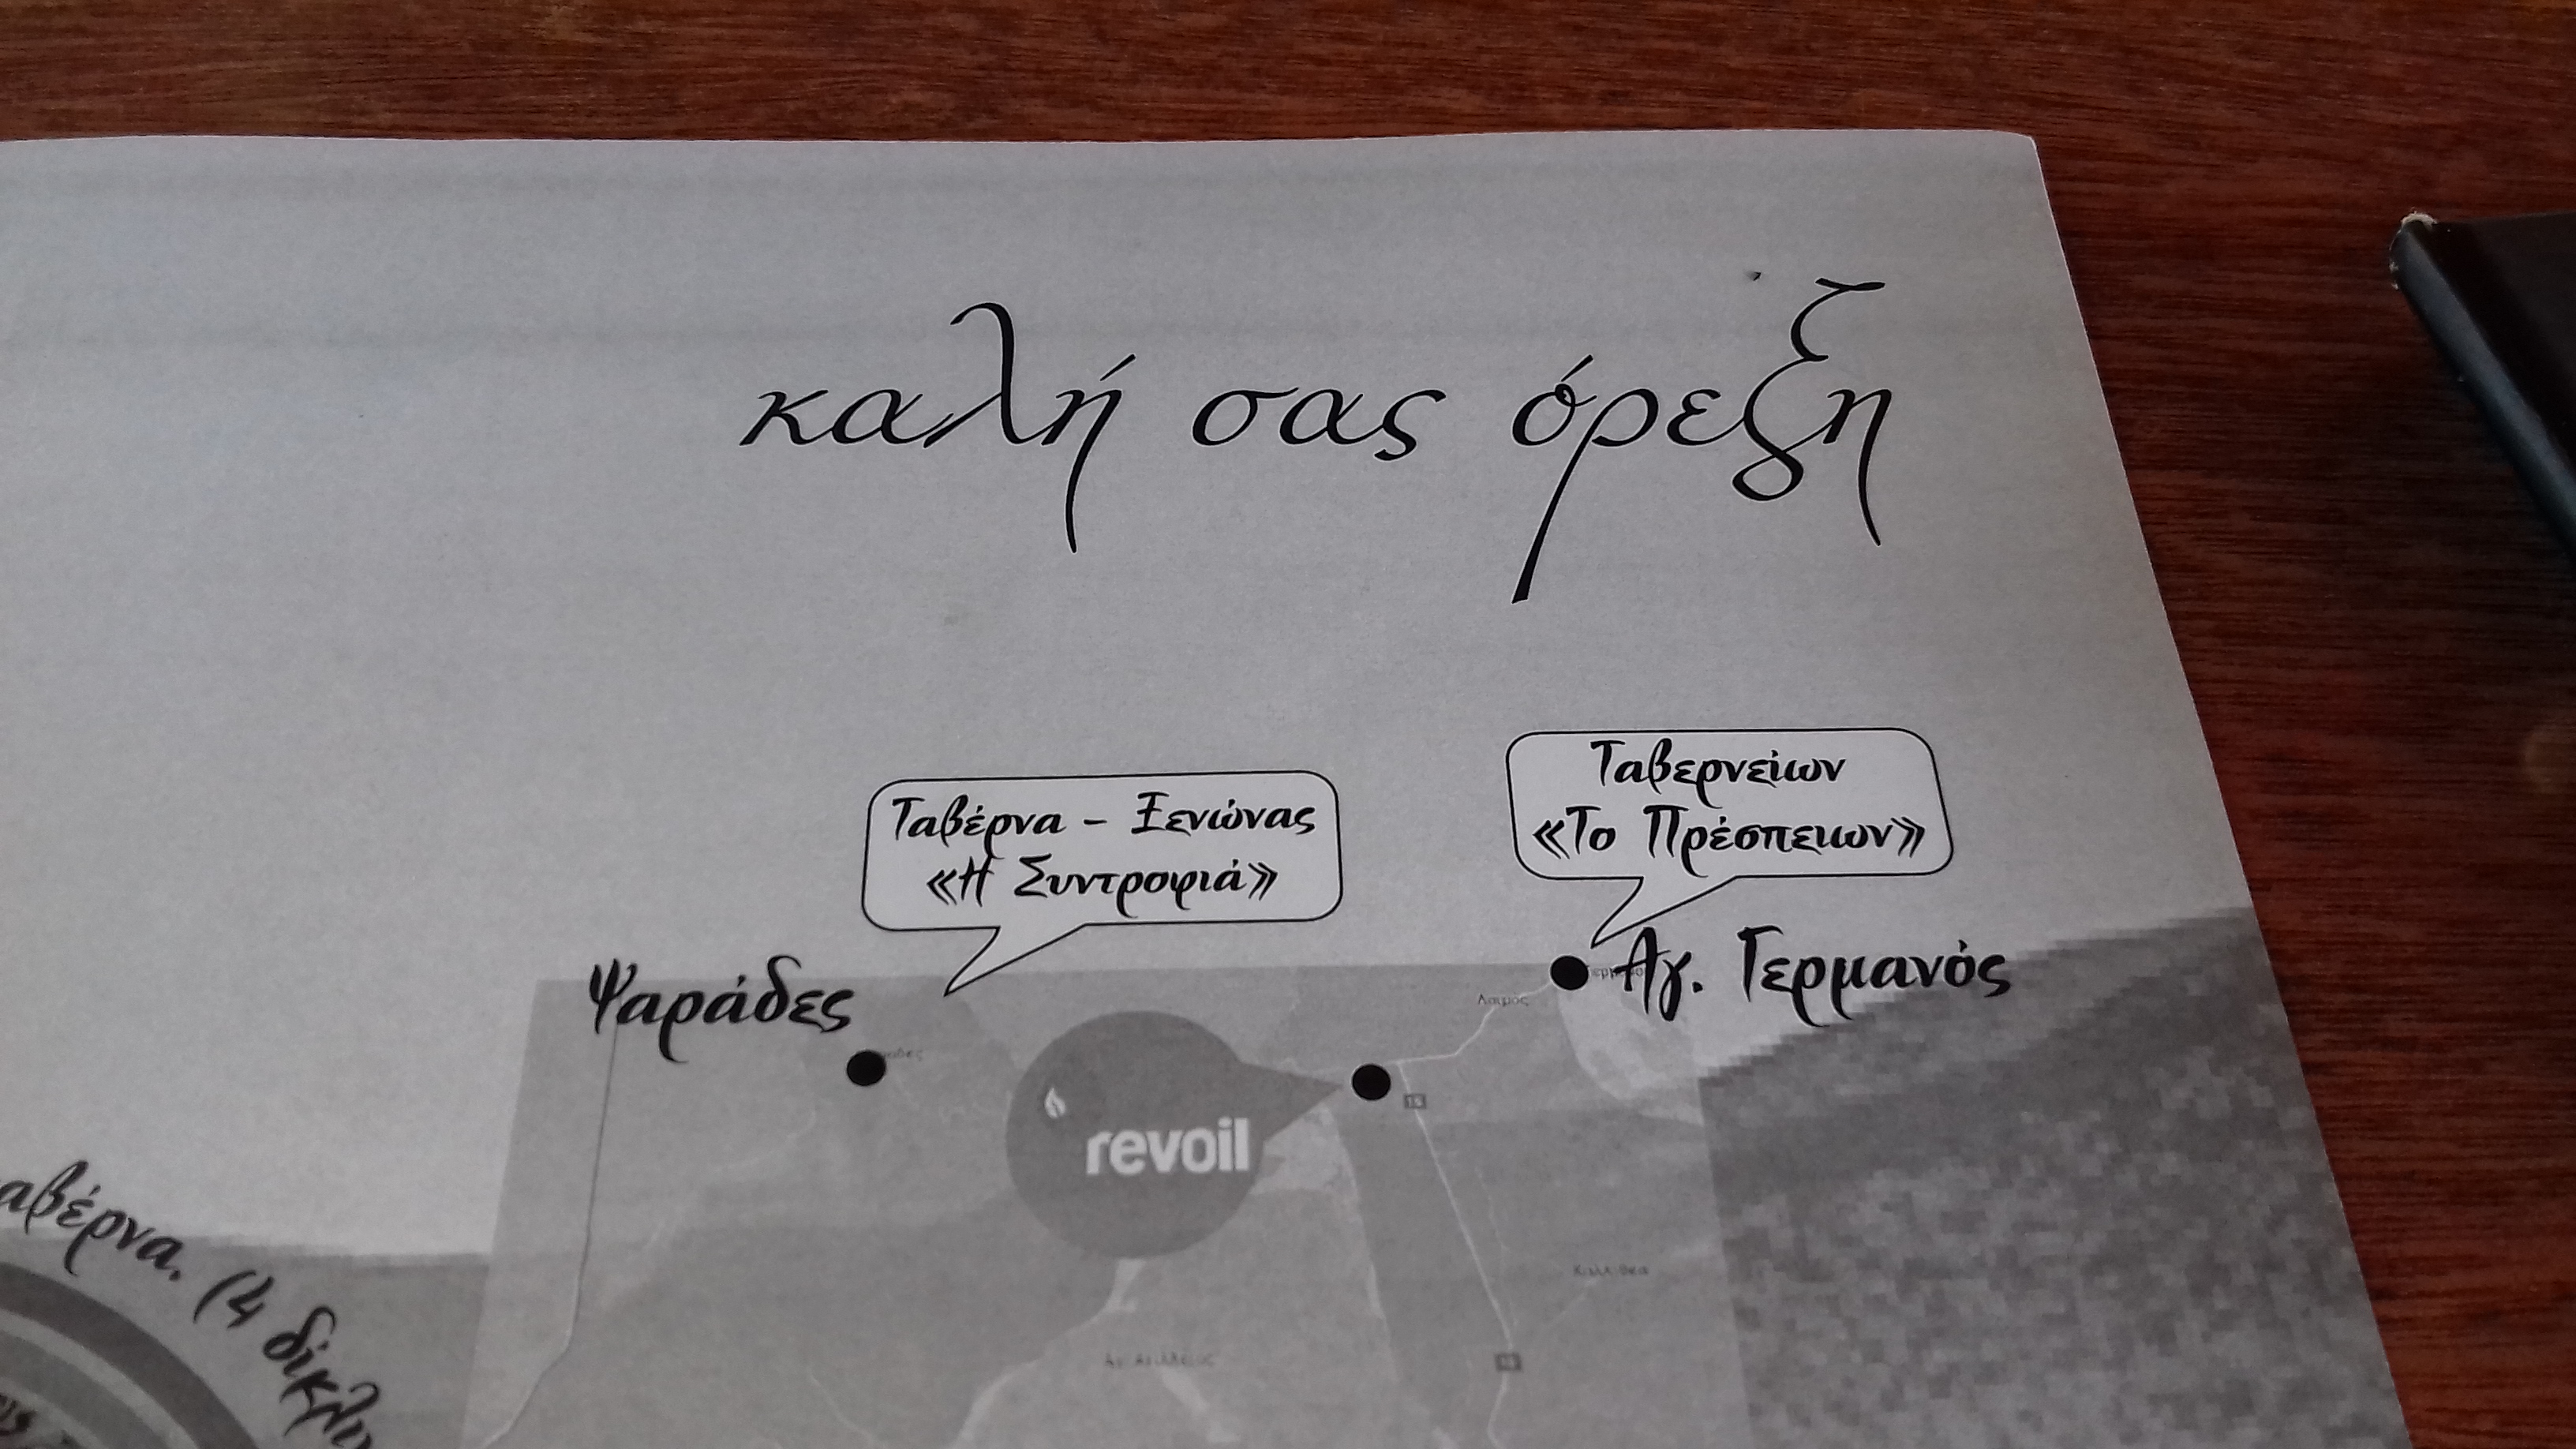 καλή σας όρεξη
Ταβέρνα - Ξενώνας
«Η Συντροφιά»
Ταβερνείων
«Το Πρέσπειων»
Ψαράδες
Αγ. Γερμανός
Λαιμός
revoil
15
αβέρνα. (4 δίκλι